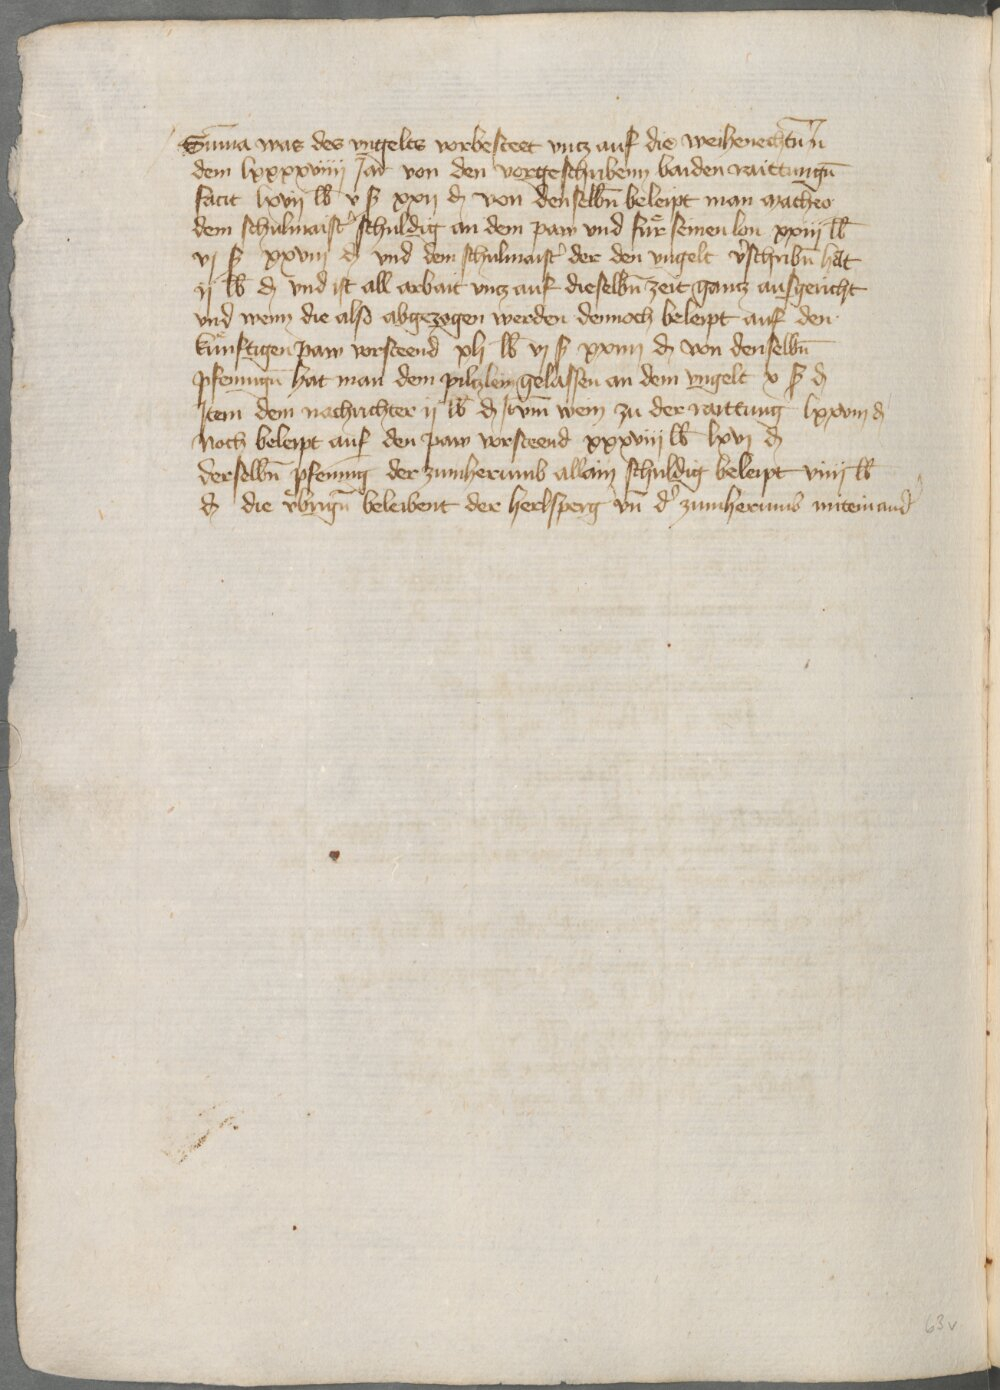 Sūma was des vngelts vorbesteet vncz auf die weihenechtn̄ ī
dem lxxxxviiii Jar von den vorgeschribenn baiden raittungn̄
facit lxvii lb v ß xxii ₰ von denselbn̄ beleipt man
dem schulmaist' schuldig an dem paw vnd für seinen lon xxiii lb
vi ß xxviii ₰ vnd dem schulmaist' der den vngelt v'schribn̄ hat
ii lb ₰ vnd ist all arbait vncz auf dieselbn̄ zeit gancz ausgericht
vnd wenn die also abgezogen werden dennoch beleipt auf den
künftigen paw vorsteend xli lb vi ß xxiiii ₰ von denselbn̄
pfenningn̄ hat man dem pilczlein gelassen an dem vngelt v ß ₰
Item dem nachrichter ii lb ₰ Jt vm̄ wein zu der raittung lxxviii ₰
Noch beleipt auf den paw vorsteend xxxviii lb lxvi ₰
derselbn̄ pfenning der zumherumb allain schuldig beleipt viiii lb
₰ die vbrign̄ beleibent der herlsperg vn̄ d' zumherumb miteinand'
63v